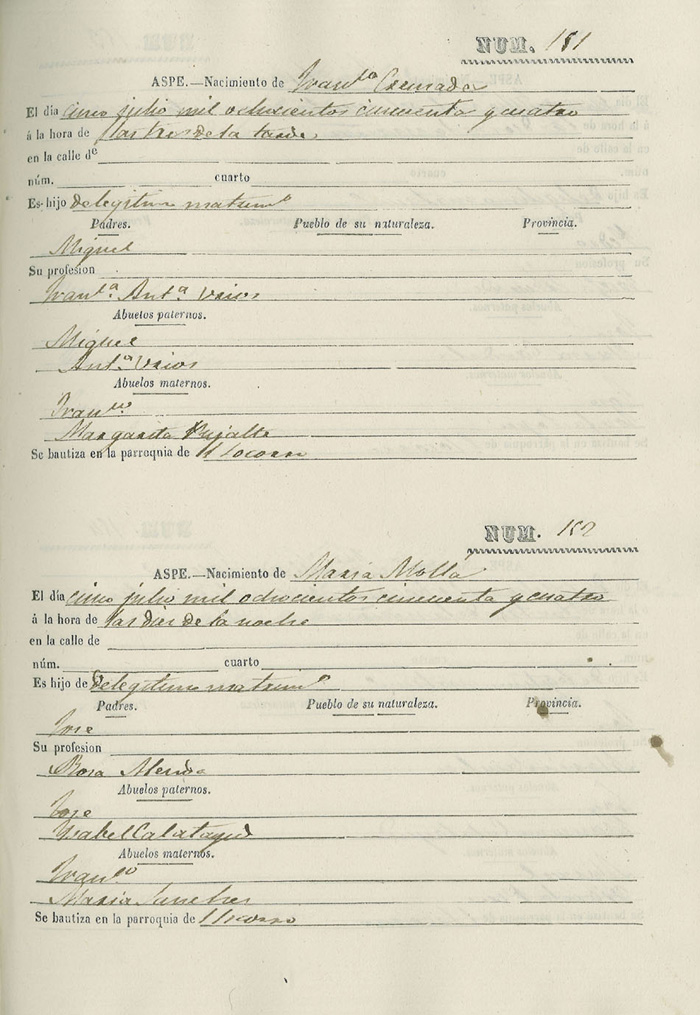 NUM. 151
ASPE.—Nacimiento de Franco Cremades
El dia cinco julio mil ochocientos cincuenta y cuatro
á la hora de las tres de la tarde
en la calle de
núm. cuarto
Es hijo de legitimo matrimo
Padres. Pueblo de su naturaleza. Provincia.
Miguel
Su profesion
Franca Anta
Abuelos paternos.
Miguel
Anta
Abuelos maternos.
Franco
Margarita
Se bautiza en la parroquia de Socorro
NUM. 152
ASPE.—Nacimiento de Maria Mollá
El dia cinco julio mil ochocientos cincuenta y cuatro
á la hora de las dies de la noche
en la calle de
núm. cuarto
Es hijo de Delegitimo matrimo
Padres. Pueblo de su naturaleza. Provincia.
Jose
Su profesion
Rosa
Abuelos paternos.
Jose
Isabel Calatayud
Abuelos maternos.
Franco
Maria Sanches
Se bautiza en la parroquia de